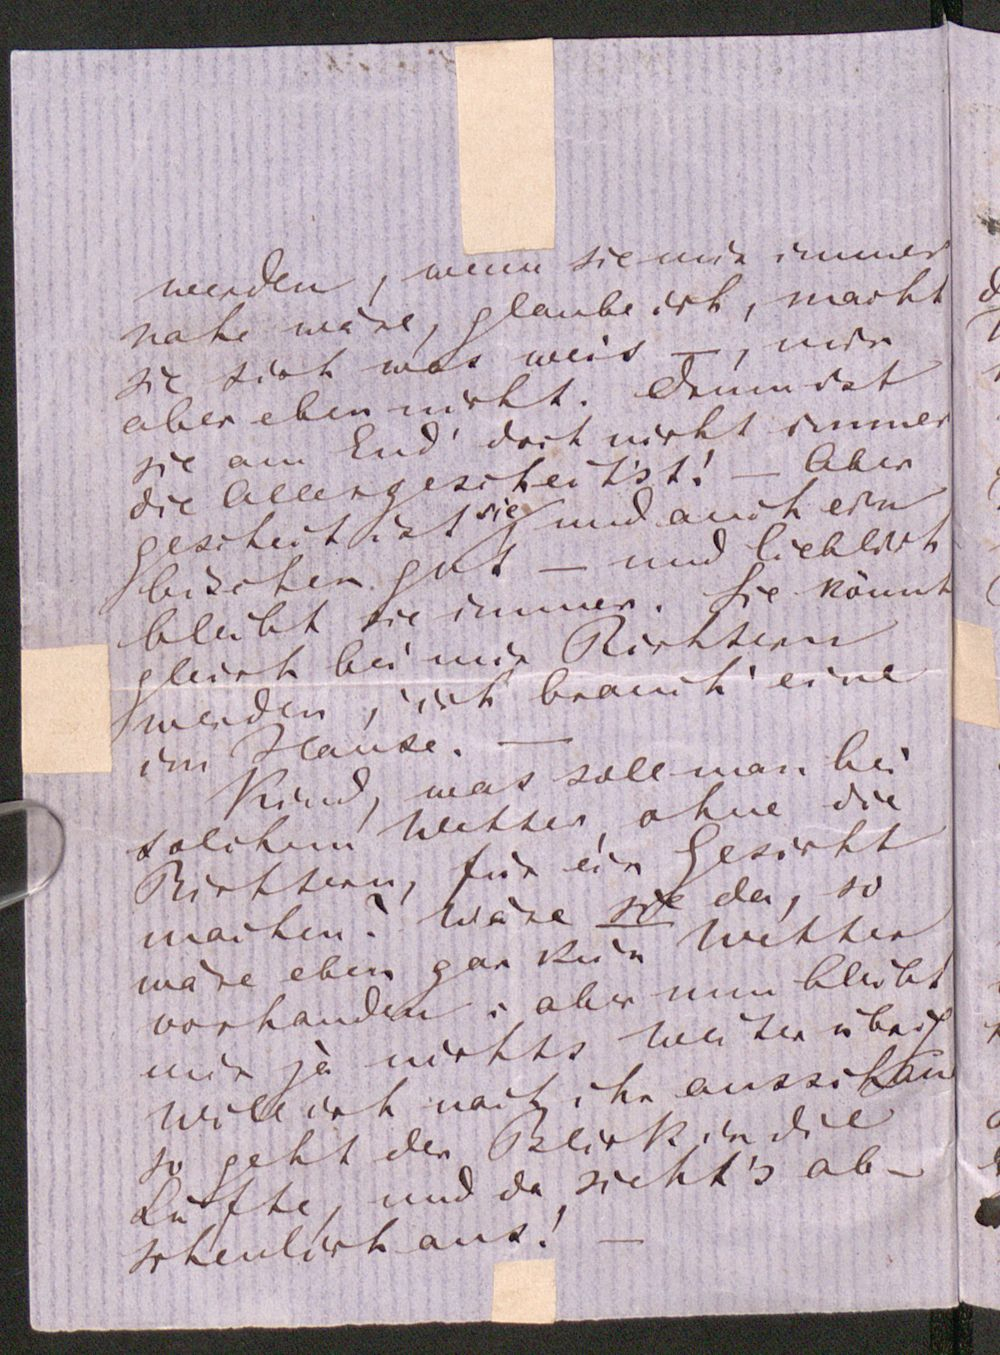 werden, wenn sie mir immer
nahe wäre, glaube ich, macht
sie sich was weis —, mir
aber eben nicht. Drum ist
sie am End' doch nicht immer
die Allergescheit'st! — Aber
gescheit ist sie, und auch ein
bischen gut — und lieblich
bleibt sie immer. Sie könnt
gleich bei mir Richtern
werden, ich brauch' eine
im Hause. —
Kind, was soll man bei
solchem Wetter, ohne die
Richtern, für ein Gesicht
machen? Wäre sie da, so
wäre eben gar kein Wetter
vorhanden: aber nun bleibt
mir ja nichts weiter übrig
will ich nach ihr ausschaun
so geht der Blick in die
Lüfte, und da sieht's ab-
scheulich aus! —